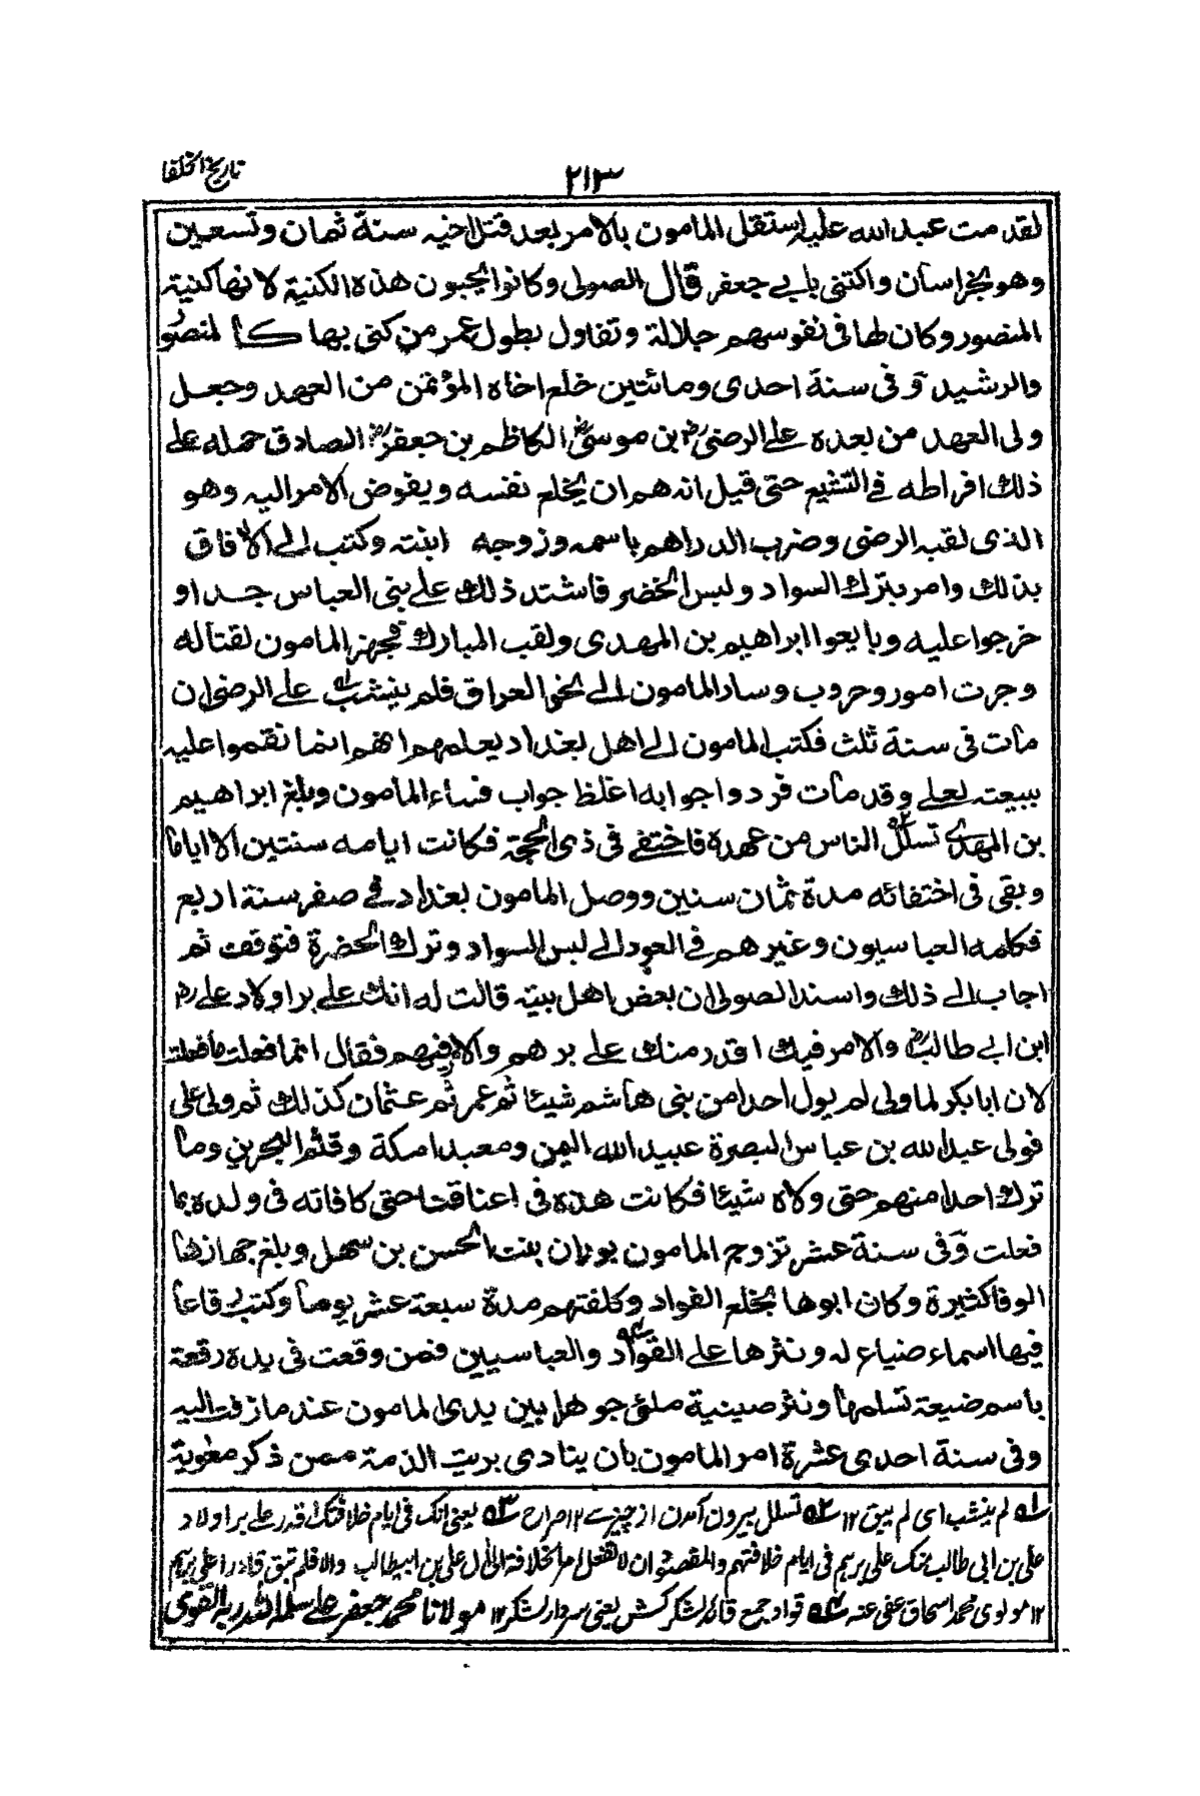 تاريخ الخلفا
٢١٣
لقد مت عبد الله عليه استقل المامون بالامر بعد قتل اخيه سنة ثمان وتسعين
وهو بخراسان واكتنى بابي جعفر قال الصولى وكانوا يحبون هذه الكنية لانها كنية
المنصور وكان لها فى نفوسهم جلالة وتفاول بطول عمر من كنى بها كالمنصور
والرشيد وفى سنة احدى ومائتين خلع اخاه المؤتمن من العهد وجعل
ولى العهد من بعده على الرضى بن موسى الكاظم بن جعفر الصادق حمله على
ذلك افراطه فى التشيع حتى قيل انه هم ان يخلع نفسه ويفوض الامر اليه وهو
الذى لقبه الرضى وضرب الدراهم باسمه وزوجه ابنته وكتب الى الافاق
بذلك وامر بترك السواد ولبس الخضر فاشتد ذلك على بنى العباس جدا و
خرجوا عليه وبايعوا ابراهيم بن المهدى ولقب المبارك فجهز المامون لقتاله
وجرت امور وحروب وسار المامون الى نحو العراق فلم ينشب على الرضى ان
مات فى سنة ثلث فكتب المامون الى اهل بغداد يعلمهم انهم انما نقموا عليه
ببيعته لعلى وقد مات فردوا جوابه اغلظ جواب فساء المامون وبلغ ابراهيم
بن المهدى تسلل الناس من عهده فاختفى فى ذى الحجة فكانت ايامه سنتين الا اياما
وبقى فى اختفائه مدة ثمان سنين ووصل المامون بغداد فى صفر سنة اربع
فكلمه العباسيون وغيرهم فى العود الى لبس السواد وترك الخضرة فتوقف ثم
اجاب الى ذلك واسند الصولى ان بعض اهل بيته قالت له انك على بر اولاد على
ابن ابى طالب والامر فيك اقدر منك على برهم والامر فيهم فقال انما فعلت ما فعلت
لان ابا بكر لما ولى لم يول احدا من بنى هاشم شيئا ثم عمر ثم عثمان كذلك ثم ولى على
فولى عبد الله بن عباس البصرة عبيد الله اليمن ومعبدا مكة وقثم البحرين وما
ترك احدا منهم حتى ولاه شيئا فكانت هذه فى اعناقنا حتى كافاته فى ولده بما
فعلت وفى سنة عشر تزوج المامون بوران بنت الحسن بن سهل وبلغ جهازها
الوفا كثيرة وكان ابوها يخلع القواد وكلفتهم مدة سبعة عشر يوما وكتب رقاعا
فيها اسماء ضياع له ونثرها على القواد والعباسيين فمن وقعت فى يده رقعة
باسم ضيعة تسلمها ونثر صينية ملئ جوهر بين يدى المامون عند ما زفت اليه
وفى سنة احدى عشرة امر المامون بان ينادى بريت الذمة ممن ذكر معوية
١ لم ينشب اى لم يبق ١٢ ٢ تسلل بيرون آمدن از چيزے ١٢ صراح ٣ يعنى انك فى ايام خلافتك اقدر على بر اولاد
على بن ابى طالب منك على برهم فى ايام خلافتهم والمقصود ان لا تفعل امر الخلافة الى آل على بن ابيطالب والا فلم تبق قادرا على برهم
١٢ مولوى محمد اسحاق عفى عنه ٤ قواد جمع قائد لشكر كش يعنى سردار لشكر ١٢ مولانا محمد جعفر على سلمه الله ربه القوى